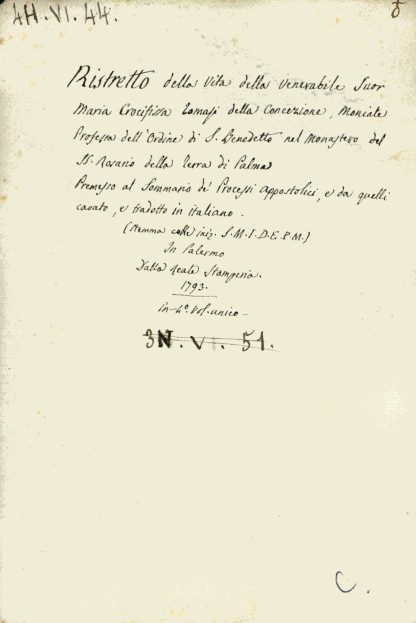 4H.VI.44.
Ristretto della vita della Venerabile Suor
Maria Crocifissa Tomasi della Concezione, Moniale
Professa dell'Ordine di S. Benedetto nel Monastero del
SS. Rosario della Terra di Palma
Premesso al Sommario de' Processi Appostolici, e da quelli
cavato, e tradotto in italiano.
(Stemma colle iniz. S.M.I.D.E.P.M.)
In Palermo
Dalla Reale Stamperia.
1793.
in-4º. Vol. unico-
3N.VI.51.
C.